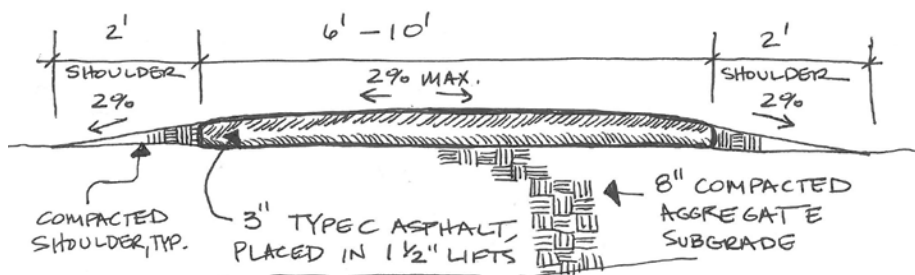 2' 6' – 10' 2'
SHOULDER 2% MAX. SHOULDER
2% 2%
COMPACTED
SHOULDER, TYP.
3" TYPE C ASPHALT,
PLACED IN 1 1/2" LIFTS
8" COMPACTED
AGGREGATE
SUBGRADE